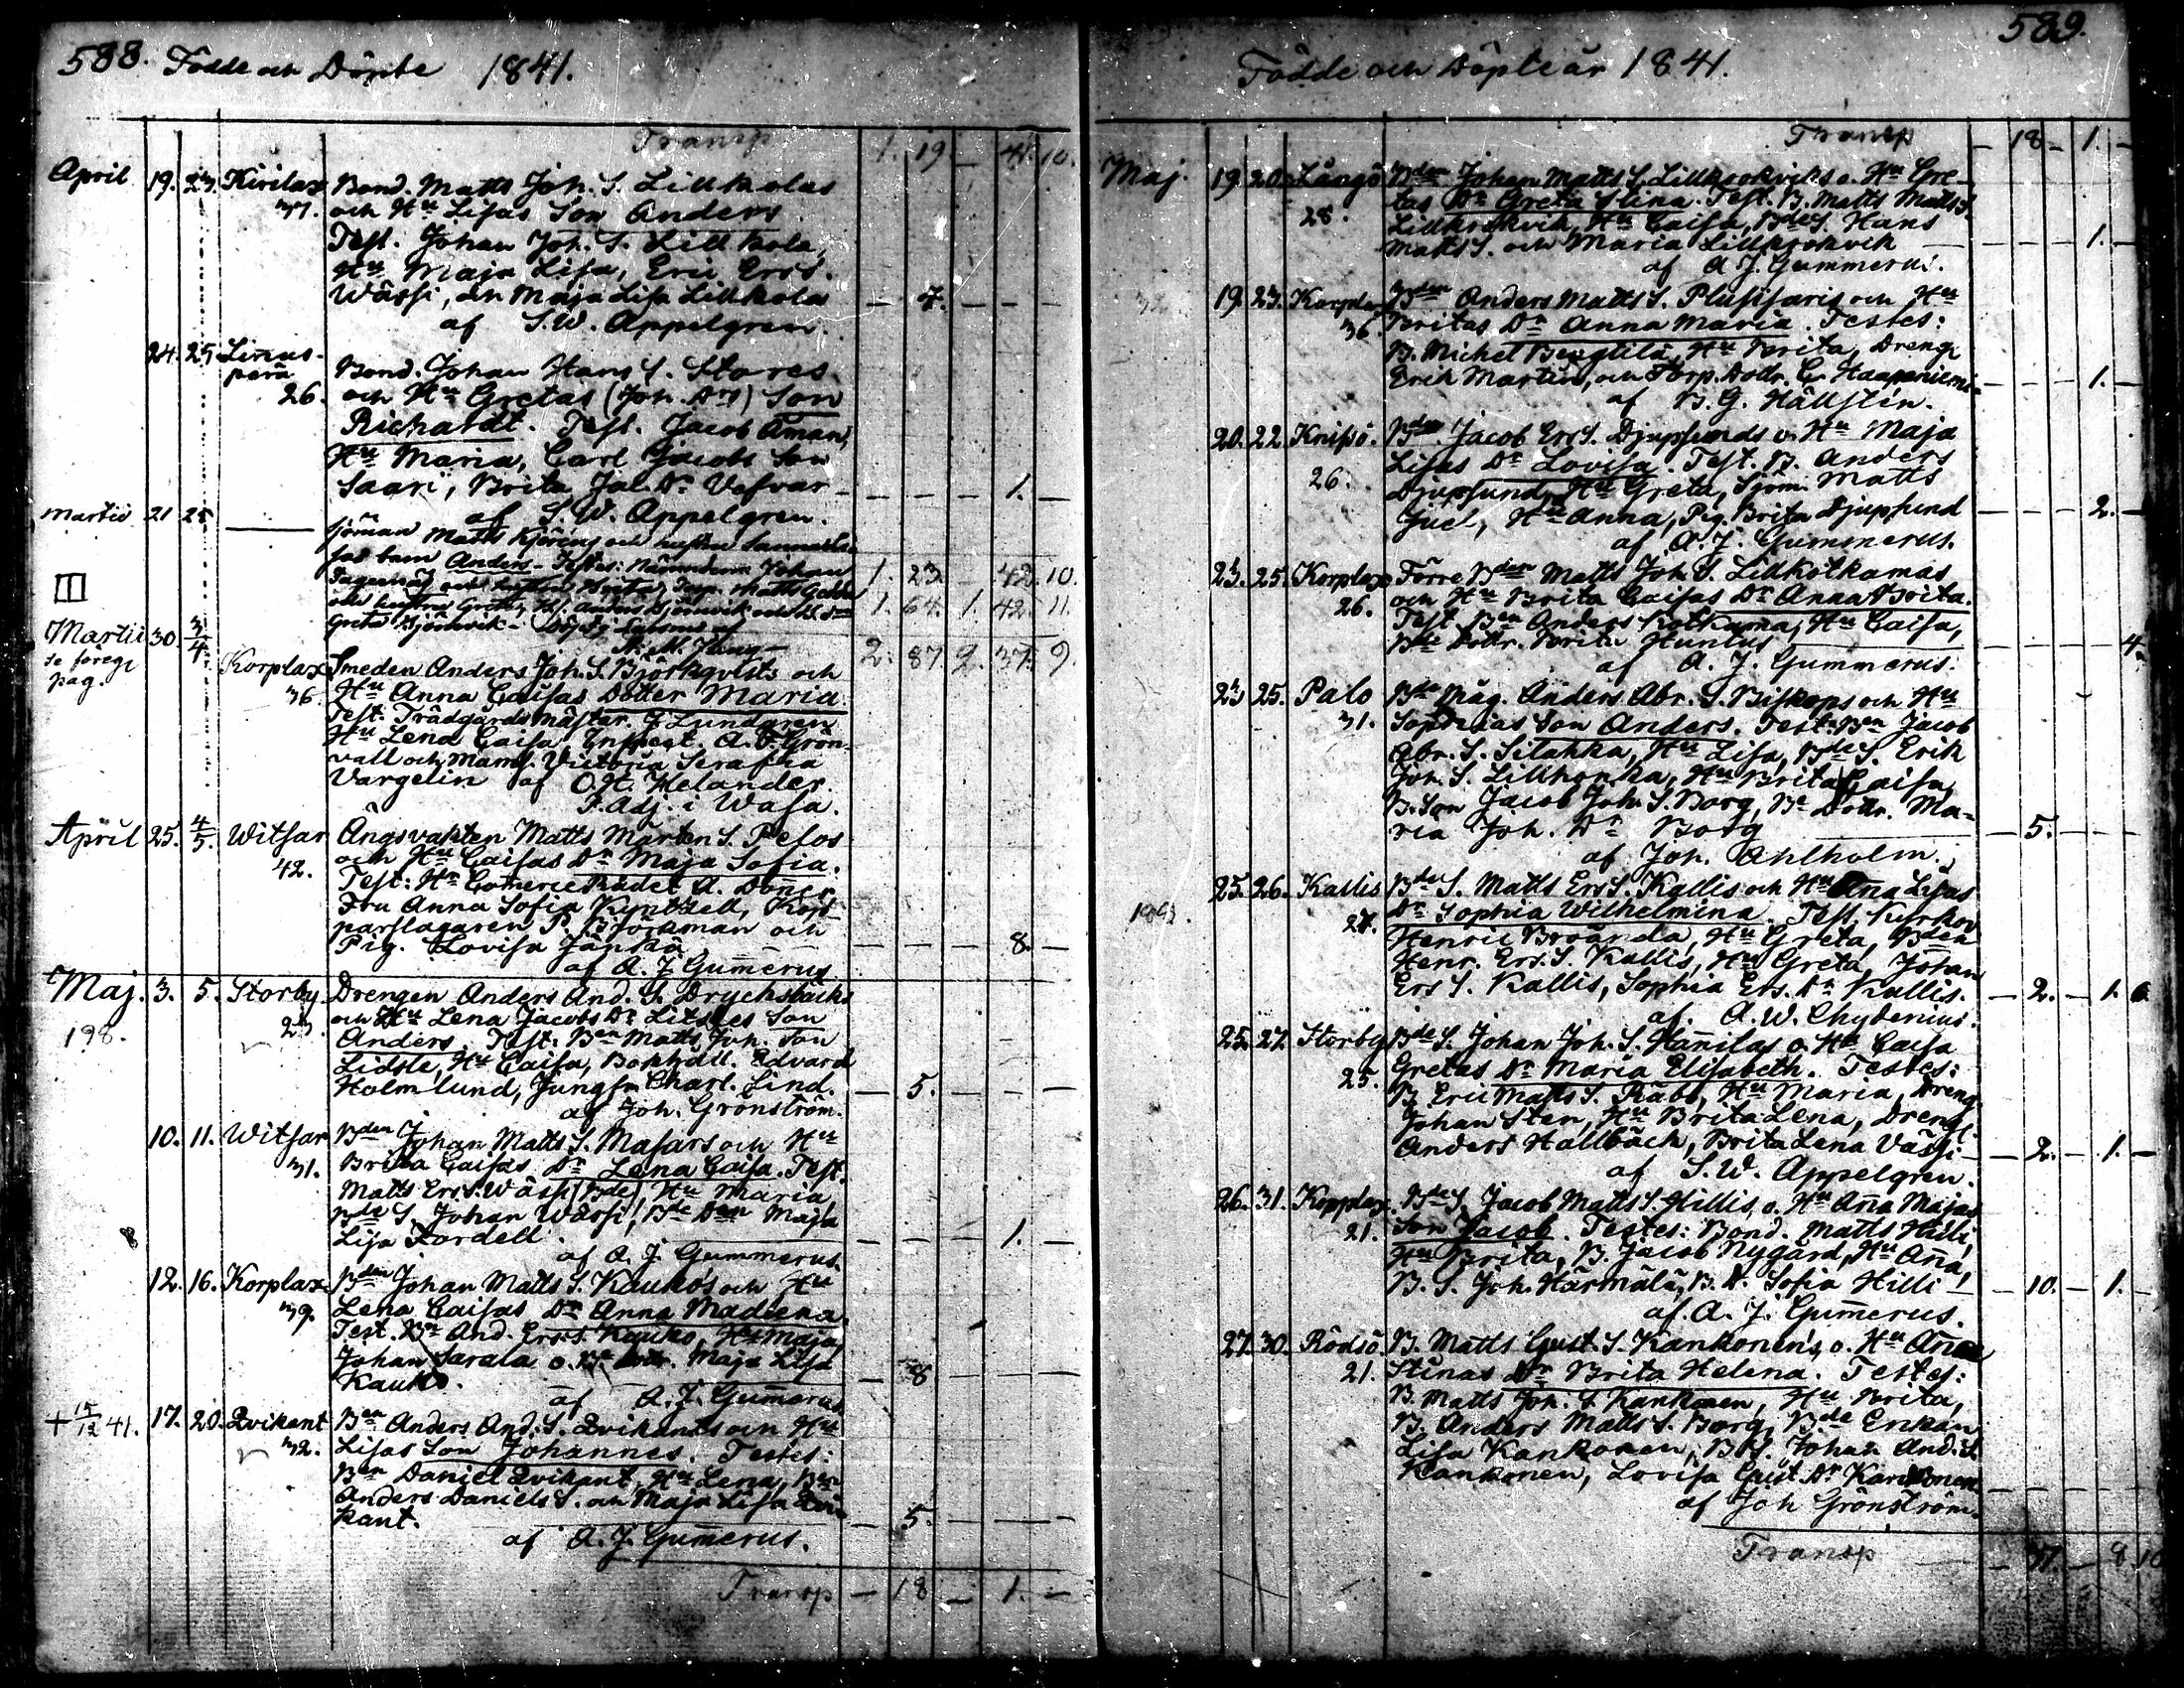 588. Födde och Döpte 1841.
Transp 1. 19 — 41. 10.
April 19. 23. Kirilax Bond. Matts Joh. S. Lillkolas
37. och Hu Lisas Son Anders
Test. Johan Joh. S. Lillkola,
Hu Maja Lisa, Eric Ers S.
Wässi, och Maja Lisa Lillkola — 7. — — —
af S. W. Appelgren.
24. 25 Lirus-
perä Bond. Johan Hans S. Stores
26. och Hu Gretas (Joh. Drs) Son
Richardt. Test. Jacob Åman,
Hu Maria, Carl Jacobs Son
Saari, Brita Jac. Dr Vefvar — — — — 1. —
af S. W. Appelgren.
Martii 21 25 — Sjöman Matts Kjöring och hustru Sanna Li-
sas barn Anders. Testes: Nämndem. Johan 1. 23 — 42. 10.
och hustru Brita, Matts 1. 64. 1. 42. 11.
och hustru Greta, Anders Björnvik och
Greta Björnvik —
2. 87. 2. 37. 9.
Martii 30. 3/4.
se föreg.
pag.
Korplax Smeden Anders Joh. S. Björkqvists och
36. Hu Anna Caisas Dotter Maria.
Test. Trädgårdsmästar. J. Lundgren
Hu Lena Caisa, Inspect. A. F. Grön-
vall och Mams. Victoria Serafia
Vargelin af O. H. Helander.
P. adj. i Wasa.
April 25. 4/5. Witsar Ängsvakten Matts Mårten S. Pelos
42. och Hu Caisas Dr Maja Sofia.
Test: Hr Comercie Rådet A. Donner
Fru Anna Sofia Kyntzell, Kop-
parslagaren P. Björkman och
Pig. Lovisa Jänkä — — — — 8. —
af A. J. Gummerus
Maj. 3. 5. Storby Drengen Anders And. S. Drycksbäcks
198. 23. och Hu Lena Jacobs Dr Litstes Son
Anders. Test. Ben Matts Joh. Son
Lidste, Hu Caisa, Bokhåll. Edvard
Holmlund, Jungfr. Charl. Lind. — 5. — — —
af Joh. Grönström.
10. 11. Witsar Bden Johan Matts S. Masars och Hu
31. Brita Caisas Dr Lena Caisa. Test.
Matts Ers S. Wässi (Bde) Hu Maria
Bde S. Johan Wässi, Bde Den Maja
Lisa Fordell — — — — 1. —
af A. J. Gummerus.
12. 16. Korplax Bden Johan Matts S. Kaukos och Hu
39. Lena Caisas Dr Anna Madlena.
Test. Bn And. Ers S. Kauko, Hu Maja,
Johan Sarala o. Bde Dottr. Maja Lisa
Kauko. — 8 — — —
af A. J. Gummerus
+ 15/12 41. 17. 20. Qvikant Ben Anders And. S. Qvikants och Hu
32. Lisas Son Johannes. Testes:
Ben Daniel Qvikant, Hu Lena, Ben
Anders Daniels S. och Maja Lisa Qvi-
kant. — 5. — — —
af A. J. Gummerus.
Transp — 18 — 1. —
589.
Födde och Döpte år 1841.
Transp — 18 — 1. —
Maj. 19. 20. Långö Bden Johan Matts S. Lillkrokviks o. Hu Gre-
28. tas Dr Greta Stina. Test. B. Matts Matts S.
Lillkrokvik, Hu Caisa, Bde S. Hans
Matts S. och Maria Lillkrokvik — — — 1. —
af A. J. Gummerus.
19. 23. Korplax Bden Anders Matts S. Plusisaris och Hu
36. Britas Dr Anna Maria. Testes:
B. Michel Bengtilä, Hu Brita, Dreng.
Erik Martin, och Torp. Dottr. C. Haapaniemi — — — 1. —
af B. G. Hällstén.
20. 22. Knifsö. Bden Jacob Ers S. Djupsunds o. Hu Maja
26. Lisas Dr Lovisa. Test. B. Anders
Djupsund, Hu Greta, Sjöm. Matts
Hu Anna, Pig. Brita Djupsund — — — 2. —
af A. J. Gummerus.
23. 25. Korplax Förre Bden Matts Joh. S. Lillkotkamas
26. och Hu Brita Caisas Dr Anna Brita.
Test. Ben Anders Kotkama, Hu Caisa,
Bde Dottr. Brita Huntus — — — — 4.
af A. J. Gummerus.
23 25. Palo Bde Måg. Anders Abr. S. Biskops och Hu
31. Sophias Son Anders. Test. Ben Jacob
Abr. S. Silakka, Hu Lisa, Bde S. Erik
Joh. S. Lillkonka, Hu Brita Caisa,
B. Son Jacob Joh. S. Borg, Be Dottr. Ma-
ria Joh. Dr Borg — 5. — — —
af Joh. Ahlholm.
25. 26. Kallis Bde S. Matts Ers S. Kallis och Hu Anna Lisas
27. Dr Sophia Wilhelmina. Test. Kyrkov.
Henric Bröända, Hu Greta, Bden
Henr. Ers S. Kallis, Hu Greta, Johan
Ers S. Kallis, Sophia Ers. Dr Kallis. — 2. — 1. 6.
af A. W. Chydenius.
25. 27. Storby Bde S. Johan Joh. S. Hannilas o. Hu Caisa
25. Gretas Dr Maria Elisabeth. Testes:
B. Eric Matts S. Råbb, Hu Maria, Dreng.
Johan Sten, Hu Brita Lena, Dreng.
Anders Hallbäck, Brita Lena Vässi — — 2. — 1. —
af S. W. Appelgren.
26. 31. Kopplax Bde S. Jacob Matts S. Hillis o. Hu Anna Majas
21. Son Jacob. Testes: Bond. Matts Hilli,
Hu Brita, B. Jacob Nygård, Hu Anna,
B. S. Joh. Härmälä, B. D. Sofia Hilli — — 10. — 1. —
af. A. J. Gummerus.
27. 30. Rödsö B. Matts Gust. S. Kankonens, o. Hu Anna
21. Stinas Dr Brita Helena. Testes:
B. Matts Joh. S. Kankonen, Hu Brita,
B. Anders Matts S. Borg, Bde Enkan
Lisa Kankonen, B. S. Johan And. S.
Kankonen, Lovisa Gust. Dr Kankonen
af Joh Grönström.
Transp